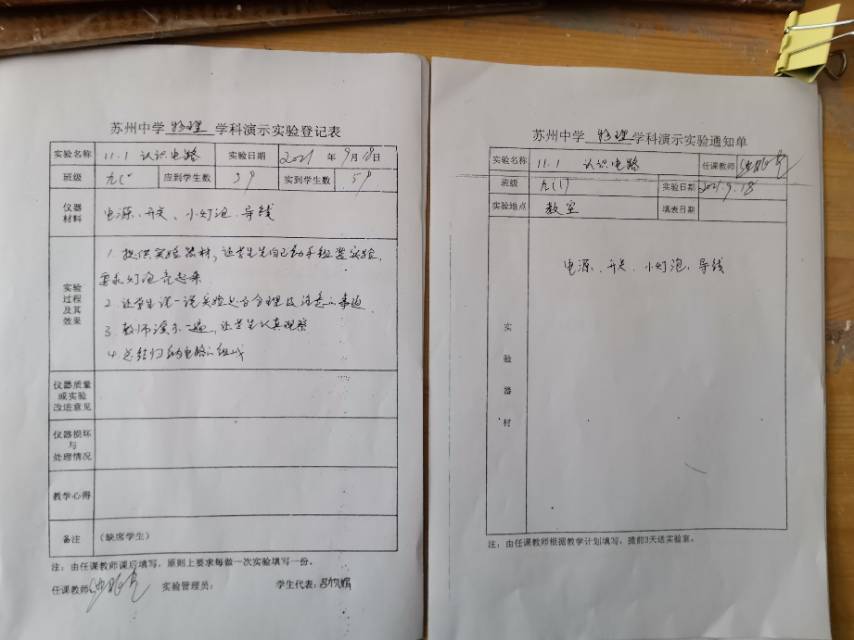 苏州中学 物理 学科演示实验登记表
实验名称 11.1 认识电路 实验日期 2021 年 9月18日
班级 九(1) 应到学生数 59 实到学生数 59
仪器材料 电源、开关、小灯泡、导线
实验过程及其效果
1 提供实验器材,让学生先自己动手组装实验,
要求灯泡亮起来
2 让学生说一说实验是否合理及注意的事项
3 教师演示一遍,让学生认真观察
4 总结归纳电路的组成
仪器质量或实验改进意见
仪器损坏与处理情况
教学心得
备注 (缺席学生)
注:由任课教师课后填写,原则上要求每做一次实验填写一份。
任课教师 实验管理员: 学生代表:
苏州中学 物理 学科演示实验通知单
实验名称 11.1 认识电路 任课教师
班级 九(1) 实验日期 2021.9.18
实验地点 教室 填表日期
实验器材
电源、开关、小灯泡、导线
注:由任课教师根据教学计划填写,提前3天送实验室。